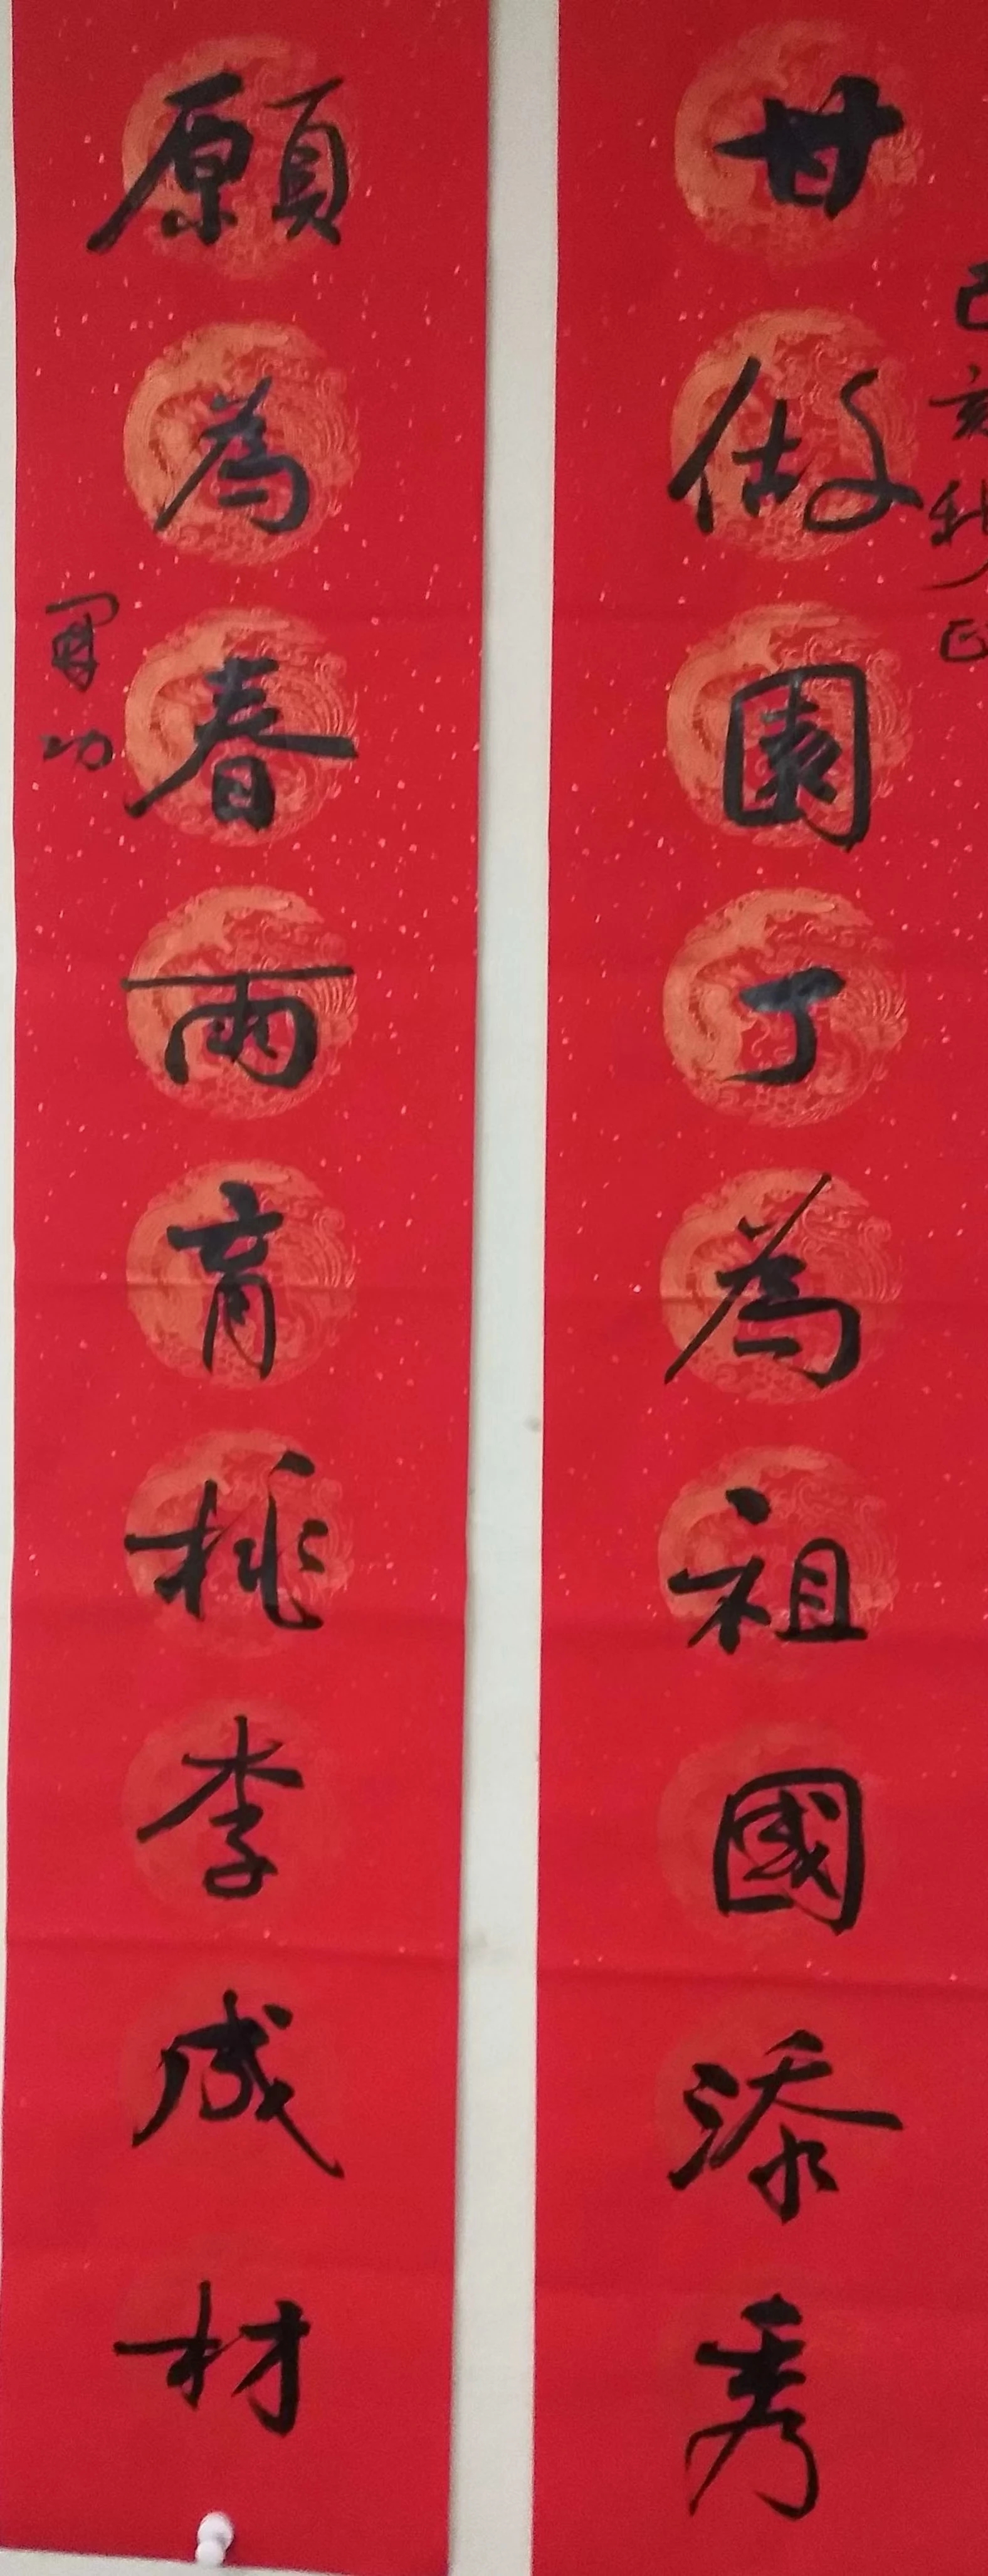 己亥秋月
甘做園丁為祖國添秀
願為春雨育桃李成材